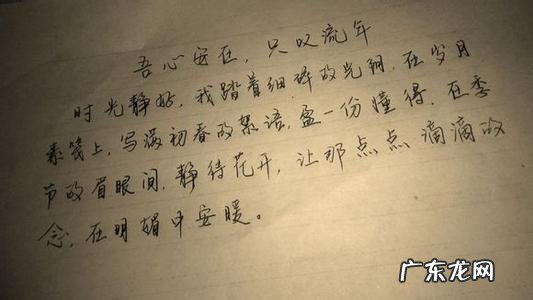 吾心安在，只叹流年
时光静好，我踏着细碎的光阴，在岁月
素笺上，写满初春的絮语，盈一份懂得，在季
节的眉眼间，静待花开，让那点点滴滴的
念，在明媚中安暖。
广东龙网